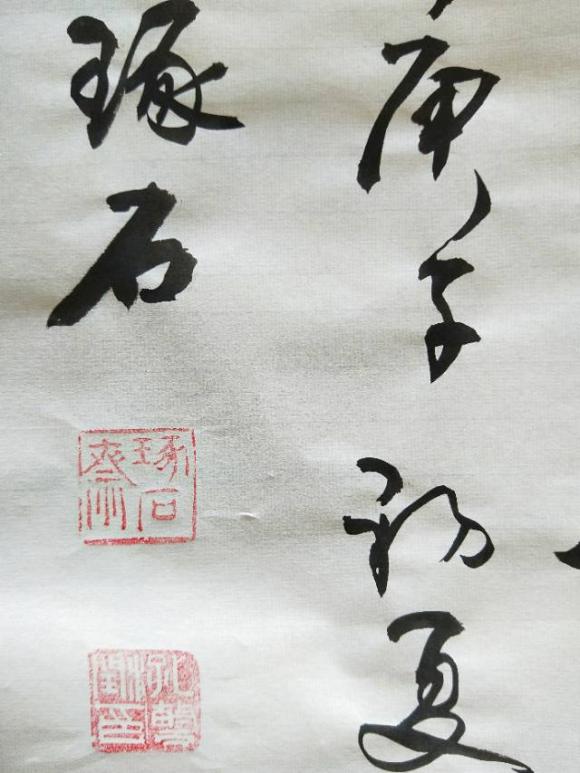 庚子初夏
琢石
琢石齋